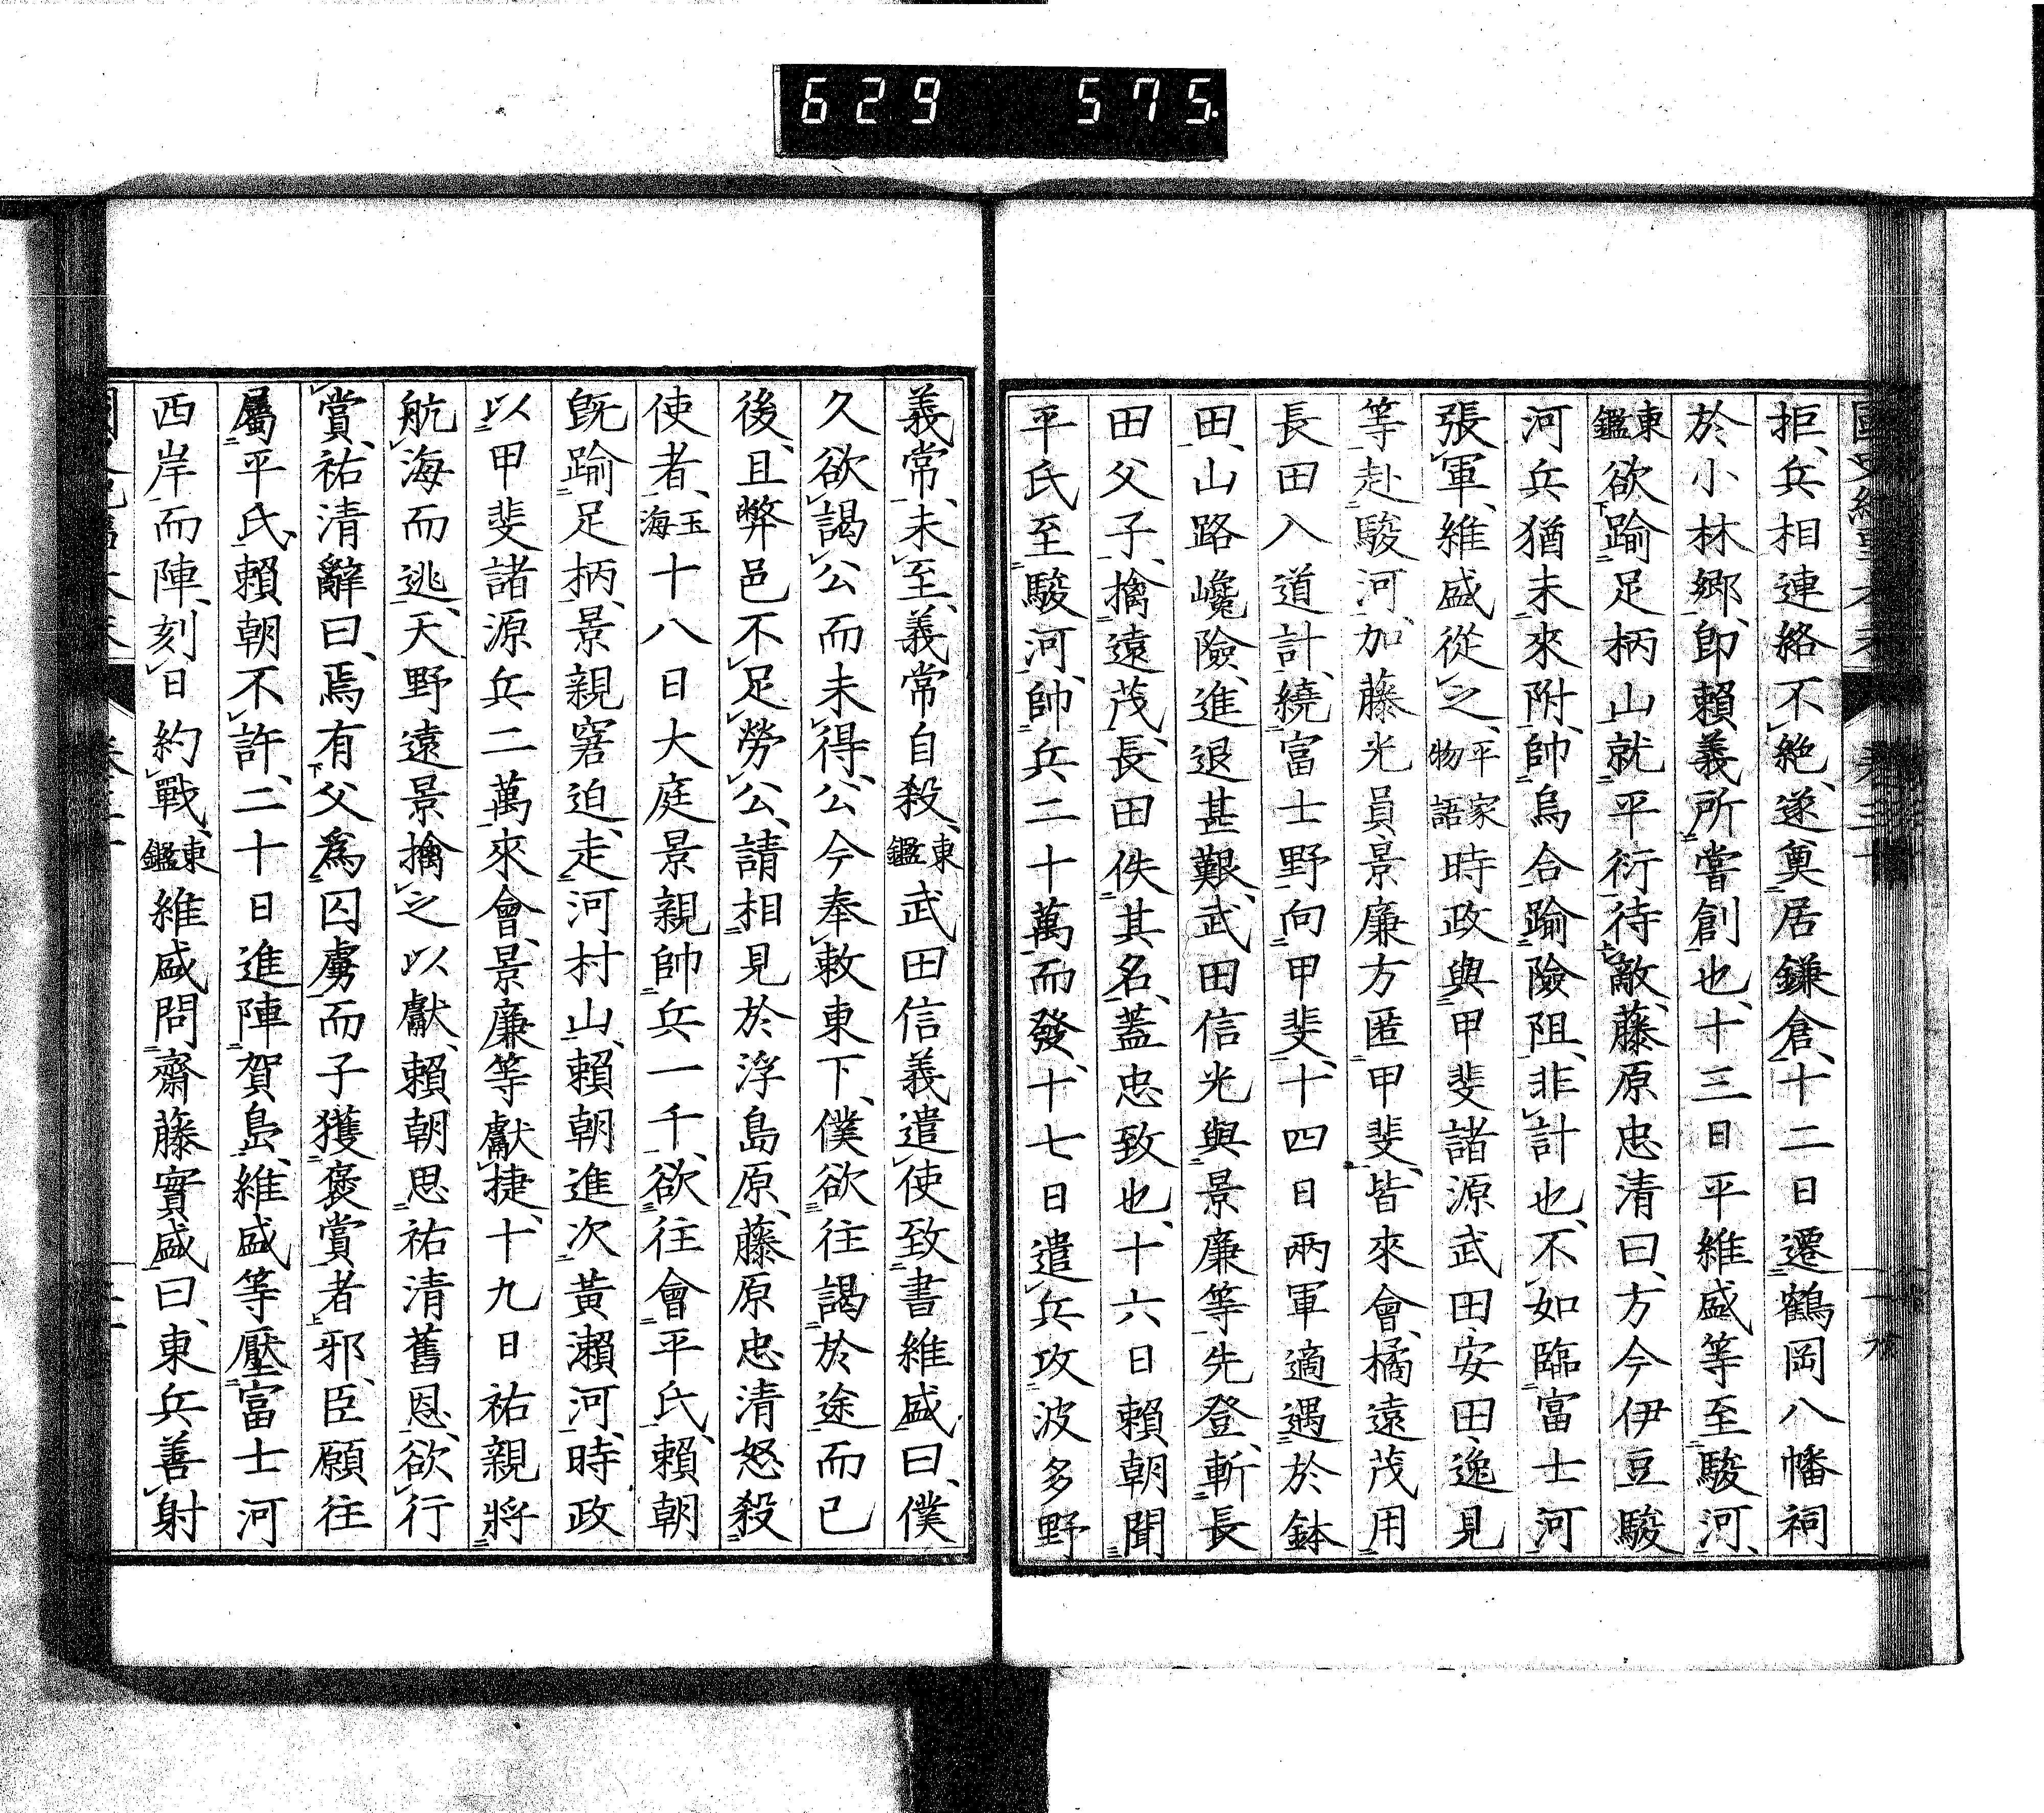 629 575
拒、兵相連絡不絶、遂奠居鎌倉、十二日遷鶴岡八幡祠
於小林郷、卽賴義所嘗創也、十三日平維盛等至駿河、
東鑑欲踰足柄山就平衍待敵、藤原忠清曰、方今伊豆駿
河兵猶未來附、帥烏合踰險阻、非計也、不如臨富士河
張軍、維盛從之、平家物語時政與甲斐諸源武田安田逸見
等赴駿河、加藤光員景廉方匿甲斐、皆來會、橘遠茂用
長田入道計、繞富士野向甲斐、十四日兩軍適遇於鉢
田、山路巉險、進退甚艱、武田信光與景廉等先登、斬長
田父子、擒遠茂、長田佚其名、蓋忠致也、十六日賴朝聞
平氏至駿河、帥兵二十萬而發、十七日遣兵攻波多野
義常、未至、義常自殺、東鑑武田信義遣使致書維盛曰、僕
久欲謁公而未得、公今奉敕東下、僕欲往謁於途而已
後、且弊邑不足勞公、請相見於浮島原、藤原忠清怒殺
使者、玉海十八日大庭景親帥兵一千、欲往會平氏、賴朝
旣踰足柄、景親窘迫、走河村山、賴朝進次黃瀨河、時政
以甲斐諸源兵二萬來會、景廉等獻捷、十九日祐親將
航海而逃、天野遠景擒之以獻、賴朝思祐清舊恩、欲行
賞、祐清辭曰、焉有父爲囚虜而子獲褒賞者邪、臣願往
屬平氏、賴朝不許、二十日進陣賀島、維盛等壓富士河
西岸而陣、刻日約戰、東鑑維盛問齋藤實盛曰、東兵善射